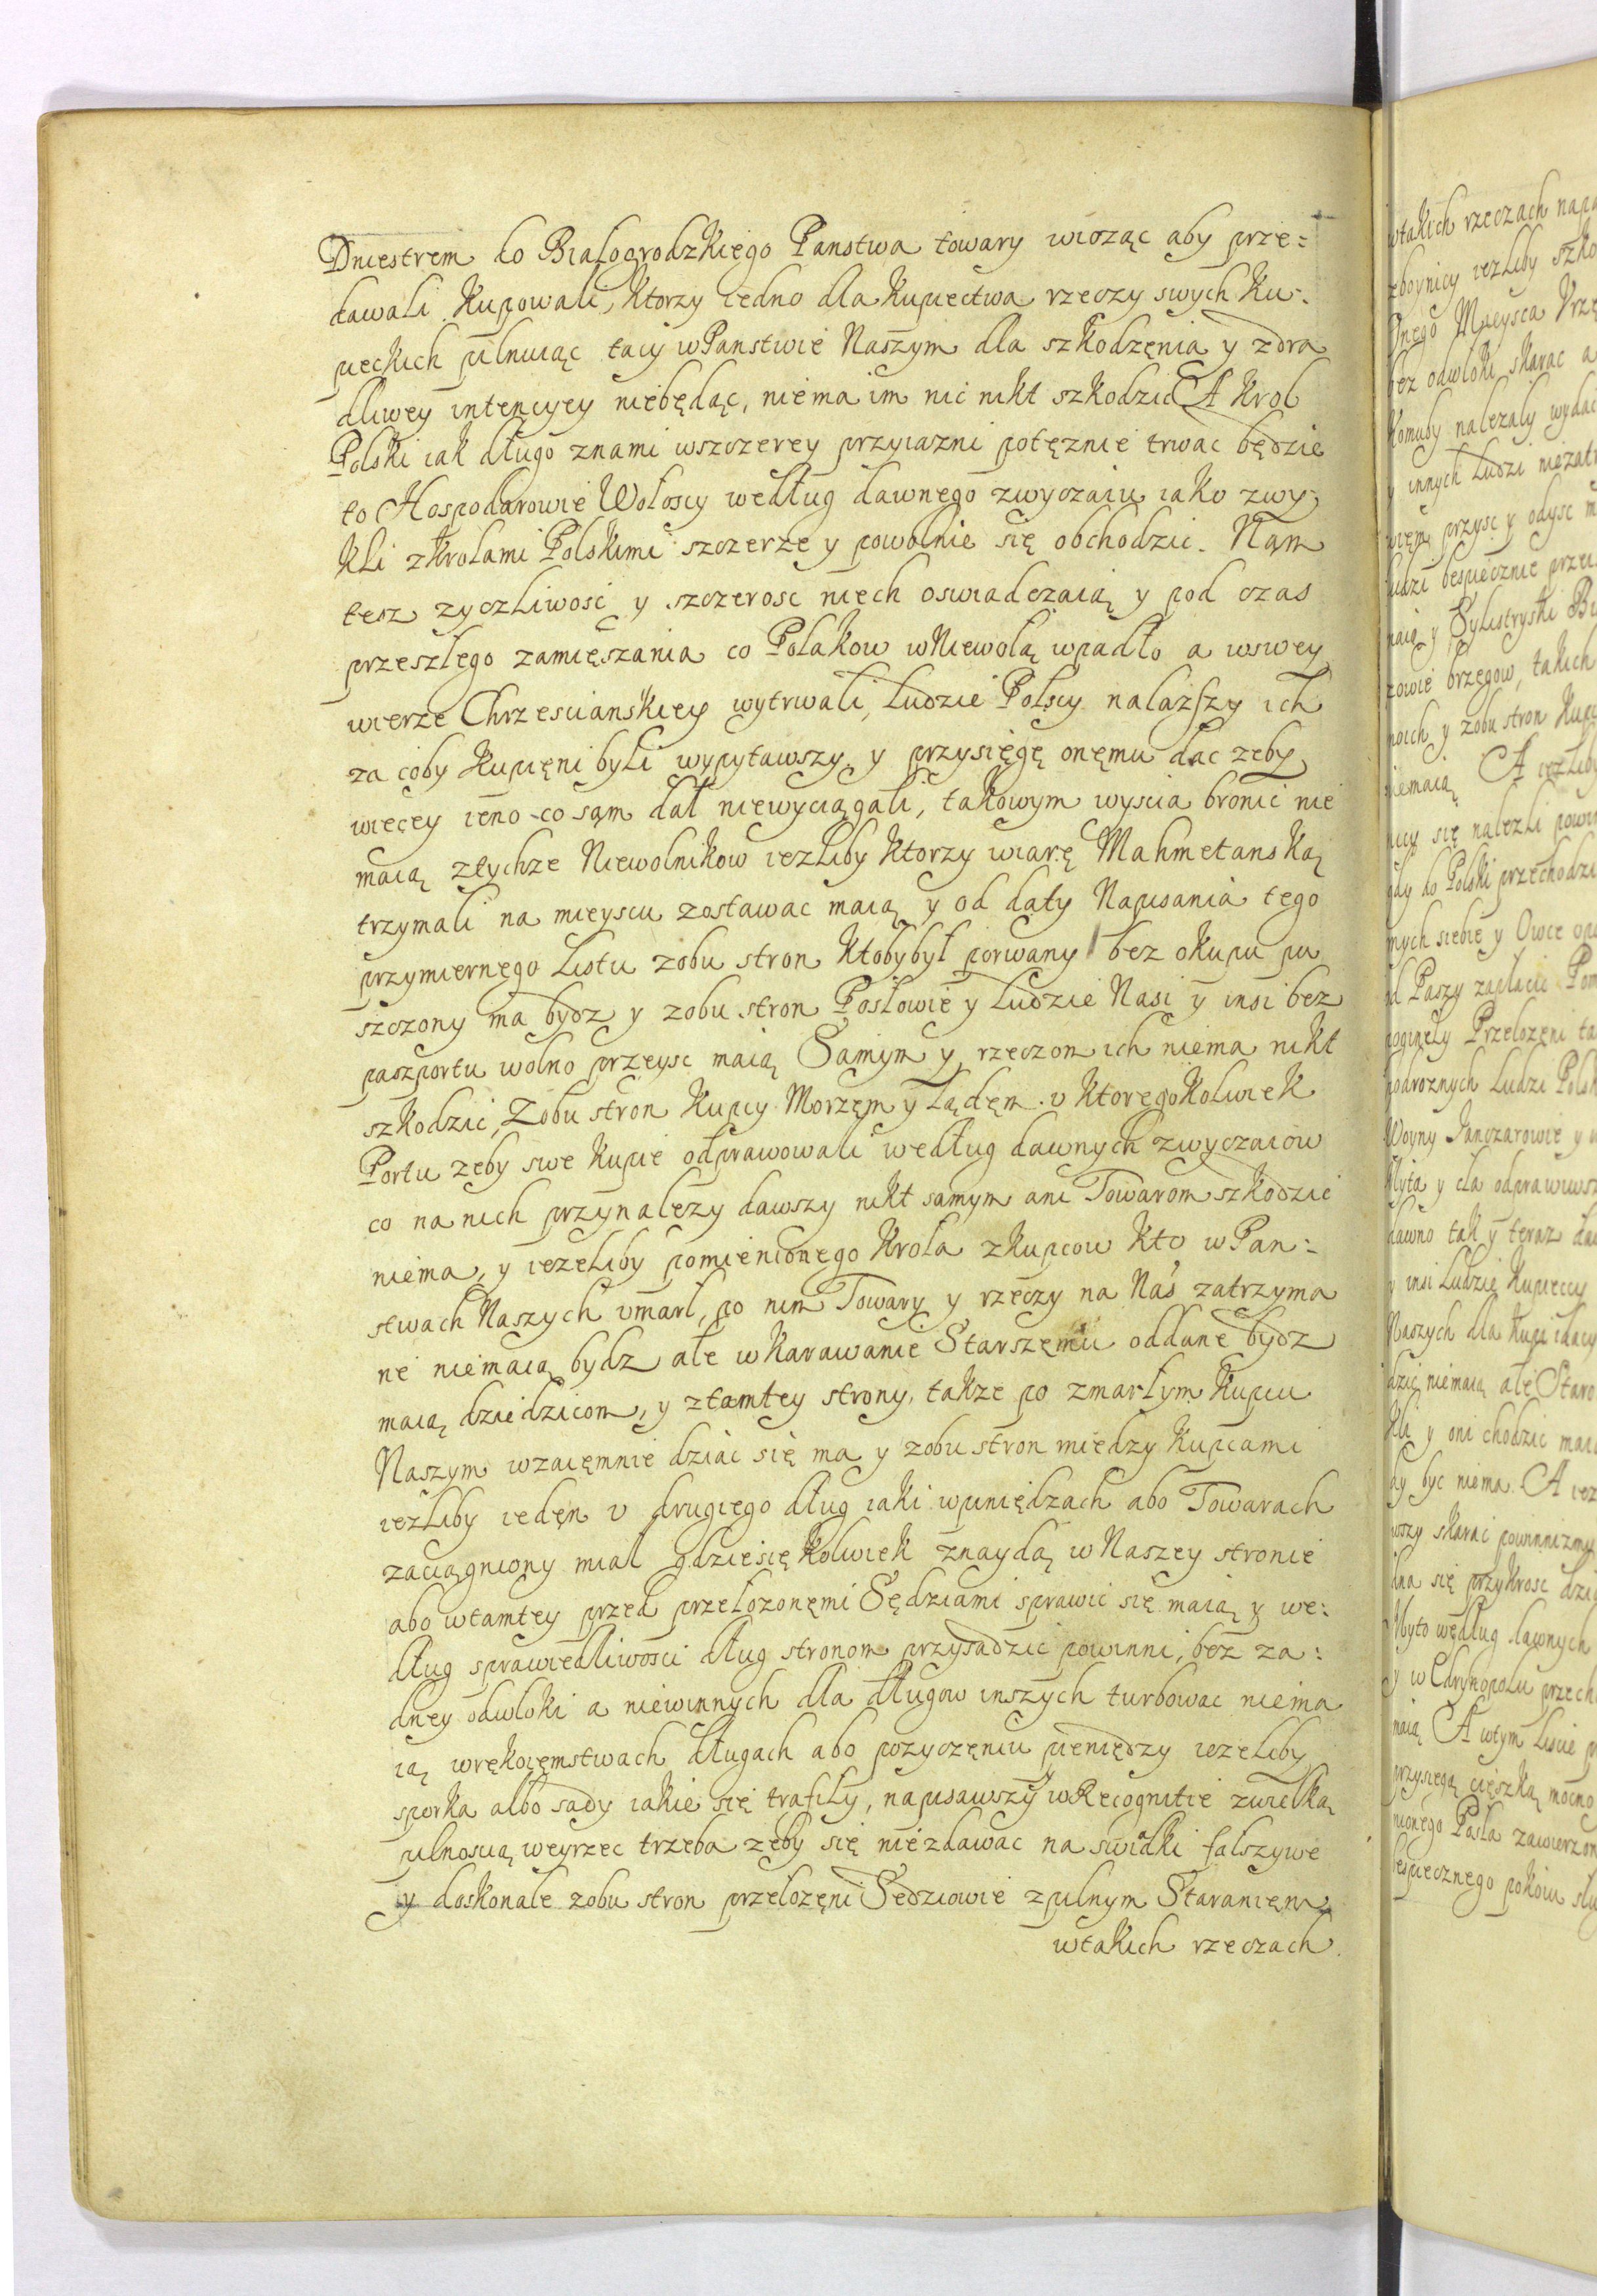 Dniestrem do Białogrodzkiego Panstwa towary wioząc aby prze=
dawali kupowali, ktorzy iedno dla kupiectwa rzeczy swych ku=
pieckich pilnuiąc taiy w Panstwie Naszym dla szkodzęnia y zdra
dliwey intęncyey niebędąc, niema im nic nikt szkodzić A krol
Polski iak długo znami wszczerey przyiazni potęznie trwac będzie
to Hospodarowie Wołoscy według dawnego zwyczaiu iako zwy=
kli zkrolami Polskimi szczerze y powolnie się obchodzic. Nam
tesz zyczliwosc y szczerosc niech oswiadczaią y pod czas
przeszłego zamięszania co Polakow w Niewolą wpadło a wswey
wierze Chrzescianskiey wytrwali, ludzie Polscy nalazszy ich
za coby kupięni byli wypytawszy y przysięgę onęmu dac zeby
więcey ieno co sąm dał niewyciągali, takowym wyscia bronić nie
maią ztychze Niewolnikow iezliby ktorzy wiarę Mahmetanską
trzymali na mieyscu zostawac maią y od daty Napisania tego
przymiernego Listu zobu stron ktobybył porwany bez okupu pu
szczony ma bydz y zobu stron Posłowie y ludzie Nasi y insi bez
paszportu wolno przeysc maią Samym y rzeczom ich niema nikt
szkodzić, Zobu stron kupcy Morzęm y Lądęm v ktoregokolwiek
Portu zeby swe kupie odprawowali według dawnych zwyczaiow
co na nich przynalezy dawszy nikt samym ani Towarom szkodzić
niema, y iezeliby pomienionego krola zkupcow kto w Pan=
stwach Naszych vmarł, po nim Towary y rzeczy na Nas zatrzyma
ne niemaią bydz ale wkarawanie Starszęmu oddane bydz
maią dziedzicom, y ztamtey strony, takze po zmarłym kupcu
Naszym wzaięmnie dziac się ma y zobu stron miedzy kupcami
iezliby iedęn v drugiego dług iaki wpiniędzach abo Towarach
zaciągniony miał gdziesię kolwiek znaydą w Naszey stronie
abo wtamtey przed przełozonęmi Sędziami sprawic się maią y we=
dług sprawiedliwosci dług stronom przysadzic powinni, bez za=
dney odwłoki a niewinnych dla długow inszych turbowac niema
ią wrękoięmstwach długach abo pozyczęniu pieniędzy iezeliby
sporka albo sady iakie się trafiły, napisawszy w Recognitie zwielką
pilnoscią weyrzec trzeba zęby się niezdawac na swiadki falszywe
y doskonale zobu stron przełozęni Sedziowie zpilnym Staranięm
wtakich rzeczach

wtakich rzeczach
zboynicy iezliby
Mieysca
bez odwłoki skarac a
komuby nalezały wydac
y innych ludzi
przysc y odysc
ludzi bespiecznie
maią y Sylistryski
brzegow, takich
y zobu stron
niemaią A iezliby
się nalezli
gdy do Polski
siebie y Owce
od Paszy zapłacic
poginęły Przełozęni
podroznych Ludzi
Woyny Janczarowie y
Myta y cla
dawno tak y teraz
y insi Ludzie kupieccy
Naszych dla kupi
niemaią ale
y oni chodzic
byc niema A iez
skarac powinnizmy
się przykrosc
Myto według dawnych
y w Edrynopolu
maią A wtym Liscie
przysięgą cięszką mocno
Posła
bespiecznego pokoiu